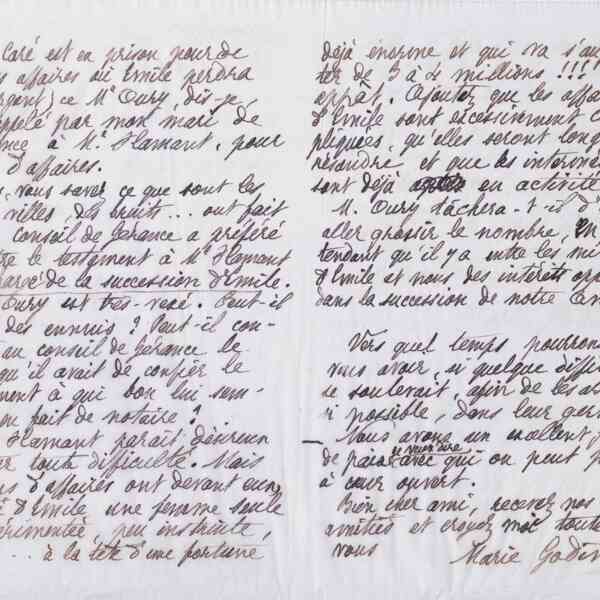 Caré est en prison pour de
affaires où Emile perdra
argent) ce Mr Oury, dis-je,
appelé par mon mari de
à Mr Flamant, pour
d'affaires.
, vous savez ce que sont les
villes, des bruits... ont fait
conseil de gérance a préféré
le testament à Mr Flamant
de la succession d'Emile.
Oury est très-vexé. Peut-il
des ennuis ? Peut-il con-
au conseil de gérance le
qu'il avait de confier le
à qui bon lui sem-
en fait de notaire ?
Flamant paraît désireux
toute difficulté. Mais
d'affaires ont devant eux
d'Emile une femme seule
, peu instruite,
... à la tête d'une fortune
déjà énorme et qui va s'au
ter de 3 à 4 millions !!!
appât. Ajoutez que les affai
d'Emile sont excessivement c
pliquées, qu'elles seront long
résoudre et que les interméd
sont déjà en activité
M. Oury tâchera-t-il d'
aller grossir le nombre, en
tendant qu'il y a entre les mi
d'Emile et nous des intérêts opp
dans la succession de notre
Vers quel temps pourrons
vous avoir, si quelque diffi
se soulevait, afin de les
si possible, dans leur ger
— Nous avons un excellent
de paix avec qui on peut p
à cœur ouvert.
Bien cher ami, recevez nos
amitiés et croyez moi toute
vous
Marie Godin